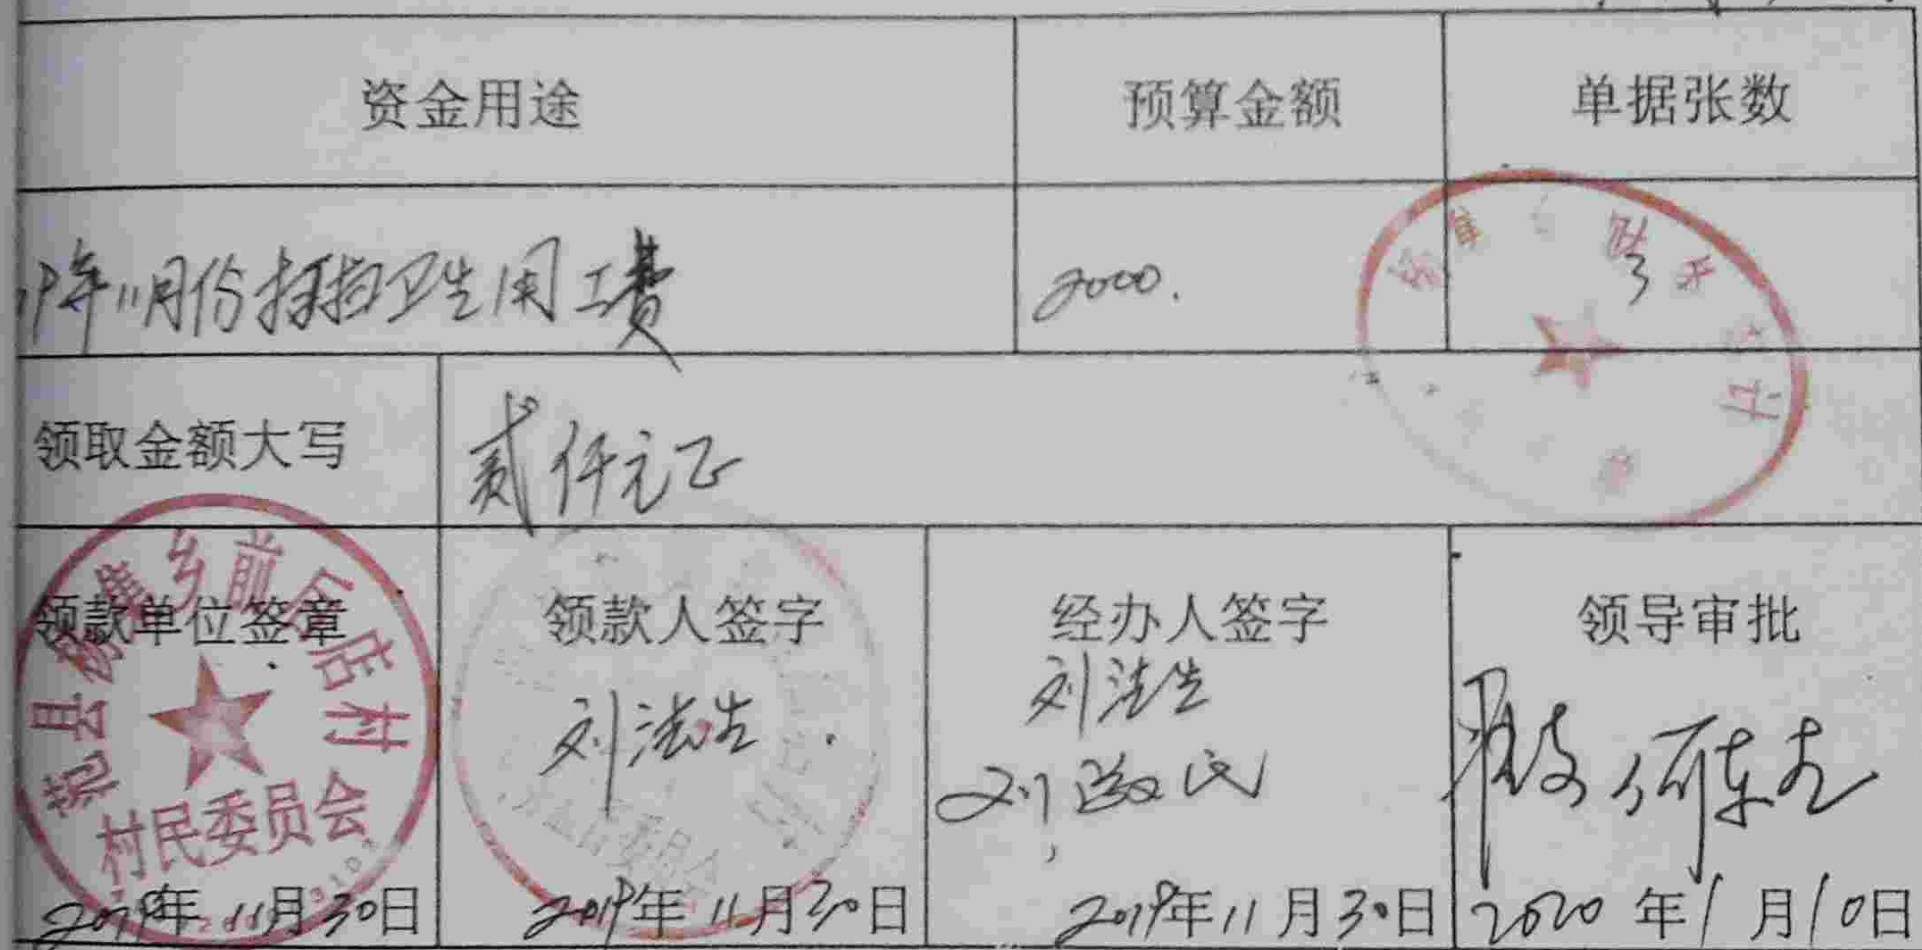 资金用途 预算金额 单据张数
19年11月份打扫卫生用工费 2000. 3
领取金额大写 贰仟元正
领款单位签章 领款人签字 经办人签字 领导审批
刘法生 刘法生
刘 民
范县 集乡前 店村
村民委员会
2019年11月30日 2019年11月30日 2019年11月30日 2020年1月10日